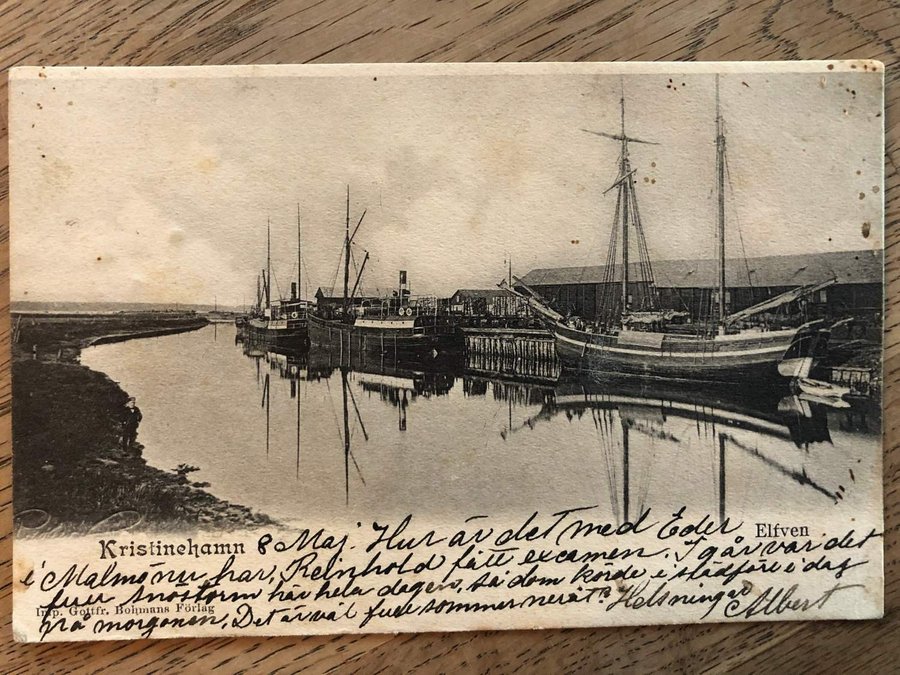 Kristinehamn
Elfven
8 Maj. Hur är det med Eder
i Malmö nu har, Reinhold fått examen. I går var det
snöstorm här hela dagen, så dom körde i slädföre i dag
på morgonen. Det är väl sommer neråt? Helsningar Albert
Imp. Gottfr. Bohmans Förlag